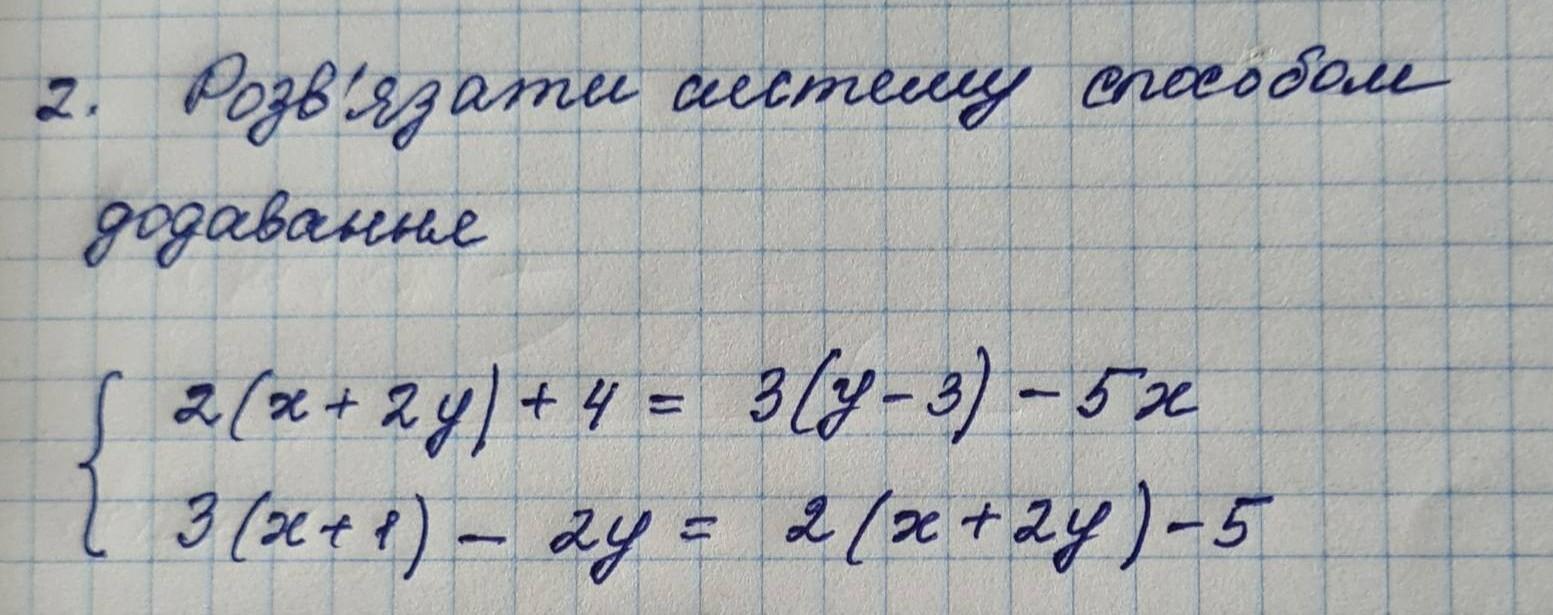 2. Розв'язати систему способом
додавання
2(x + 2y) + 4 = 3(y - 3) - 5x
3(x + 1) - 2y = 2(x + 2y) - 5